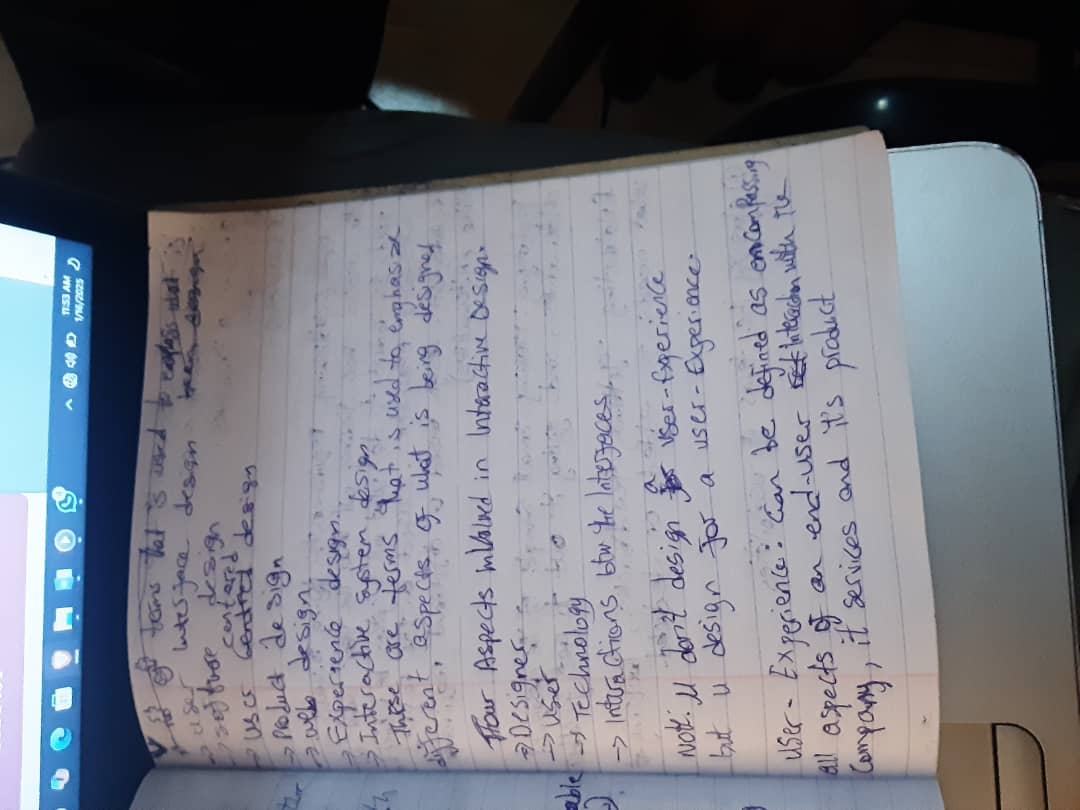 11:53 AM
1/16/2025
of terms that is used to
-> user Interface design
-> software design
centered
-> user design
-> Product design
-> web design.
-> Experience design.
-> Interactive system design
These are terms that is used to emphasize
different aspects of what is being designed
Four Aspects involved in Interactive Design.
-> Designer
-> user
-> Technology
-> Interactions btw the Interfaces
able
Note: u don't design a user-Experience
but u design for a user-Experience.
User-Experience: Can be defined as encompassing
all aspects of an end-user Interaction with the
Company, it services and it's product